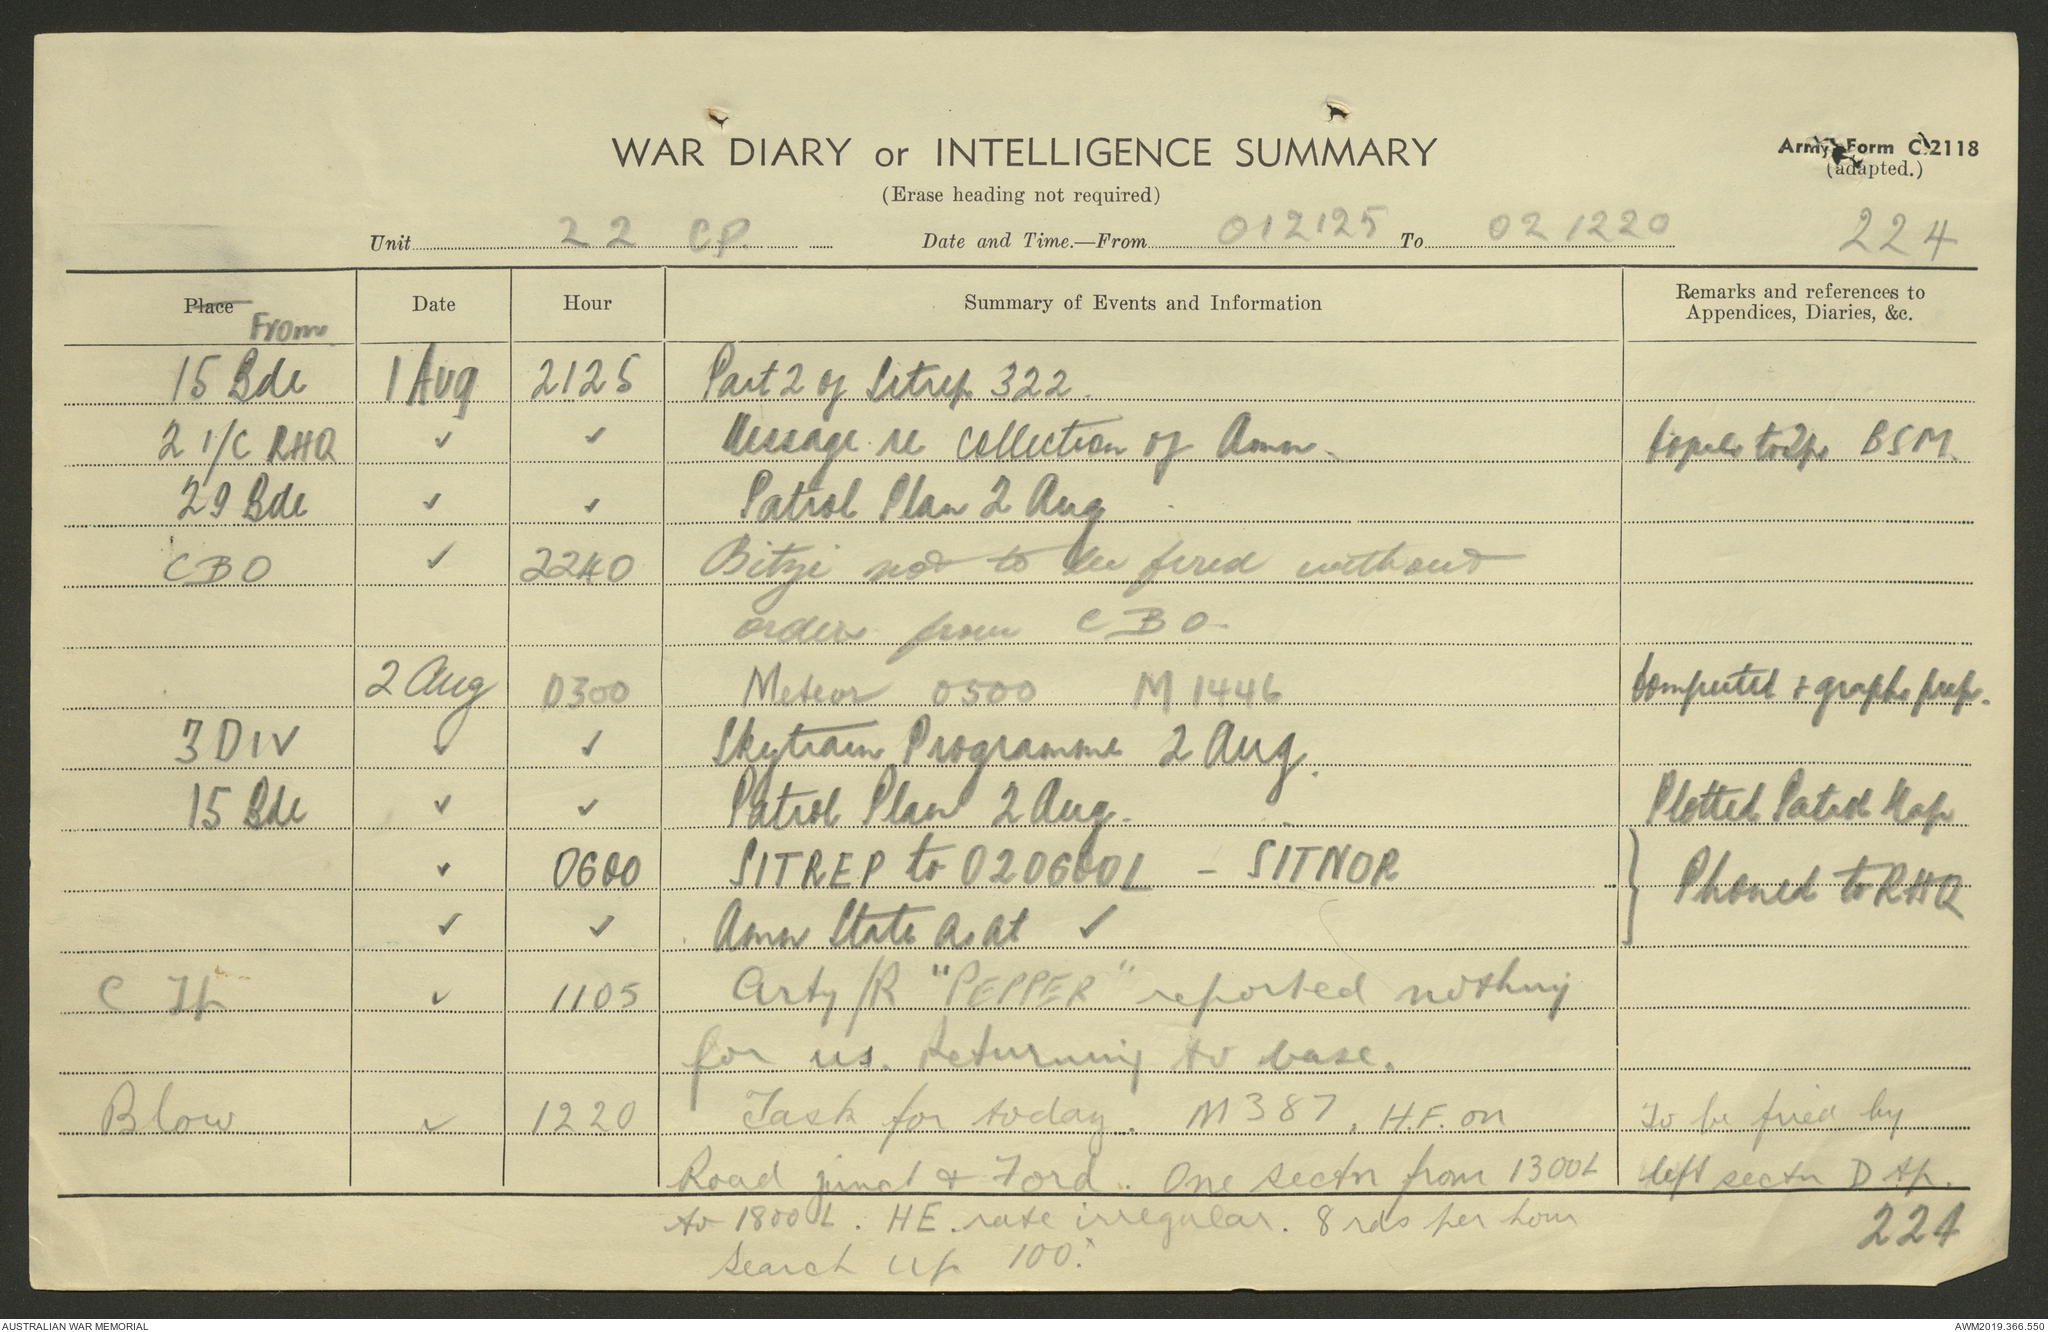 WAR DIARY or INTELLIGENCE SUMMARY
Army Form C.2118
(adapted.)
(Erase heading not required)
Unit 22 CP. Date and Time.—From 012125 To 021220 224
Place Date Hour Summary of Events and Information Remarks and references to
Appendices, Diaries, &c.
From
15 Bde 1 Aug 2125 Part 2 of Sitrep 322.
2 I/C RHQ ✓ ✓ Message re collection of Amn. BSM.
29 Bde ✓ ✓ Patrol Plan 2 Aug
CBO ✓ 2240 not to be fired without
orders from CBO
2 Aug 0300 Meteor 0500 M 1446 Computed & graphs prep.
3 DIV ✓ ✓ Skytrain Programme 2 Aug.
15 Bde ✓ ✓ Patrol Plan 2 Aug. Plotted Patrol Map
✓ 0600 SITREP to 020600L - SITNOR } Phoned to RHQ
✓ ✓ Amn State as at ✓
C Tp ✓ 1105 Arty/R "PEPPER" reported nothing
for us. Returning to base.
Blow ✓ 1220 Task for today. M387, H.F. on To be fired by
Road junct & Ford. One sectn from 1300L left sectn D tp.
to 1800L. HE. rate irregular. 8 rds per hour 224
search up 100.x
AUSTRALIAN WAR MEMORIAL AWM2019.366.550